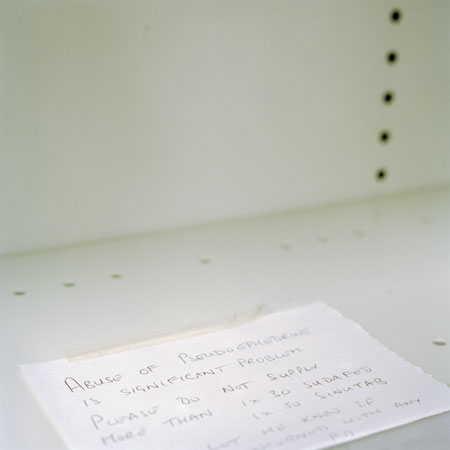 ABUSE OF PSEUDOEPHEDRINE
IS SIGNIFICANT PROBLEM
PLEASE DO NOT SUPPLY
MORE THAN 1X30 SUDAFED
1X30 SINUTAB
LET ME KNOW IF
WITH ANY